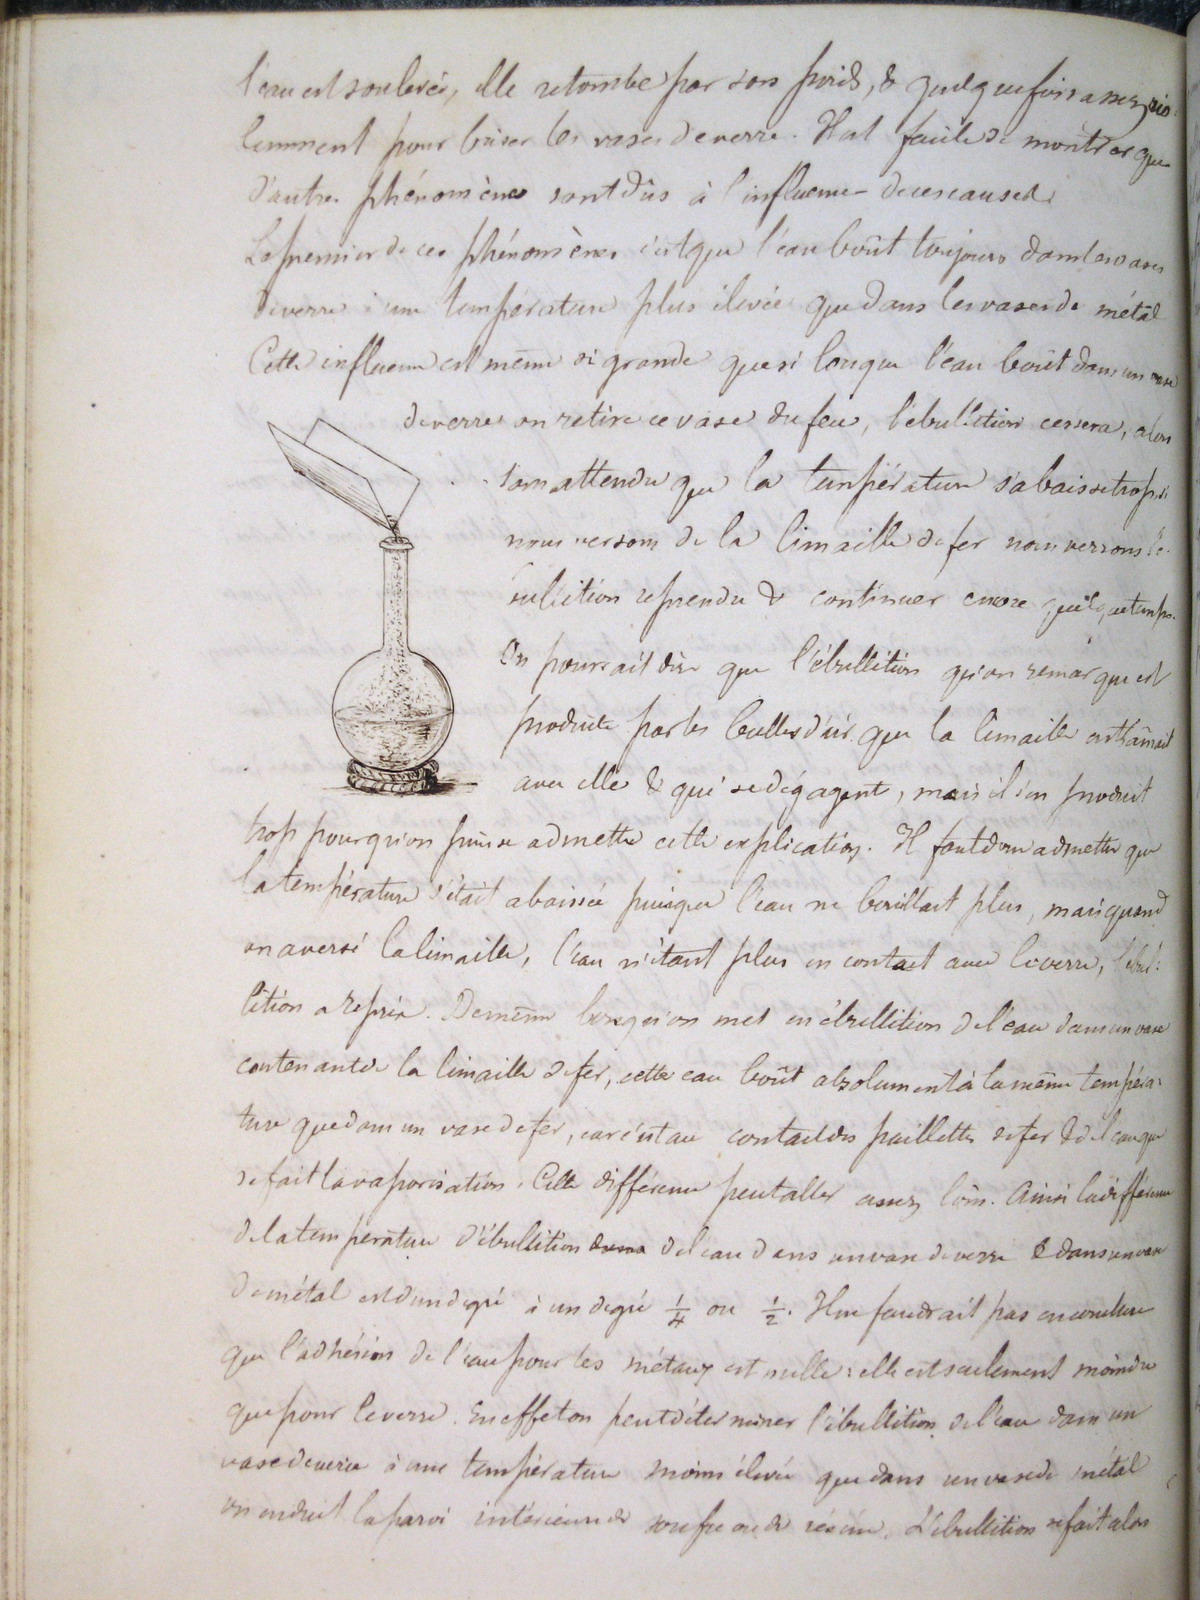 l'eau est soulevée, elle retombe par son poids, & quelquefois assez vio
lemment pour briser les vases de verre. Il est facile de montrer que
d'autres phénomènes sont dûs à l'influence de ces causes.
Le premier de ces phénomènes c'est que l'eau boût toujours dans les vases
de verre à une température plus élevée que dans les vases de métal
Cette influence est même si grande que si lorsque l'eau boût dans un vase
de verre on retire ce vase du feu, l'ébullition cessera, alors
sans attendre que la température s'abaisse trop si
nous versons de la limaille de fer nous verrons l'é-
bullition reprendre & continuer encore quelque temps.
On pourrait dire que l'ébullition qu'on remarque est
produite par les bulles d'air que la limaille entraînait
avec elle & qui se dégagent, mais il s'en produit
trop pour qu'on puisse admettre cette explication. Il faut donc admettre que
la température s'était abaissée puisque l'eau ne bouillait plus, mais quand
on a versé la limaille, l'eau n'étant plus en contact avec le verre, l'ébul:
lition a repris. De même lorsqu'on met en ébullition de l'eau dans un vase
contenant de la limaille de fer, cette eau boût absolument à la même tempéra:
ture que dans un vase de fer, car c'est au contact des paillettes de fer & de l'eau que
se fait la vaporisation. Cette différence peut aller assez loin. Ainsi la différence
de la température d'ébullition de l'eau dans un vase de verre & dans un vase
de métal est d'un degré à un degré 1/4 ou 1/2. Il ne faudrait pas en conclure
que l'adhésion de l'eau pour les métaux est nulle: elle est seulement moindre
que pour le verre. En effet on peut déterminer l'ébullition de l'eau dans un
vase de verre à une température moins élevée que dans un vase de métal
on enduit la paroi intérieure de soufre ou de résine. L'ébullition se fait alors